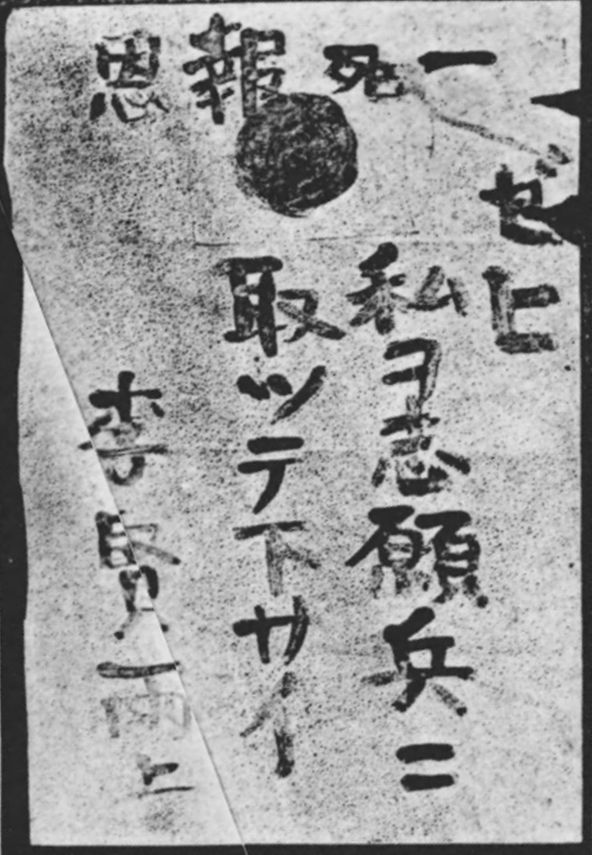 一死報恩
ゼヒ
私ヲ志願兵ニ
取ツテ下サイ
李 雨上